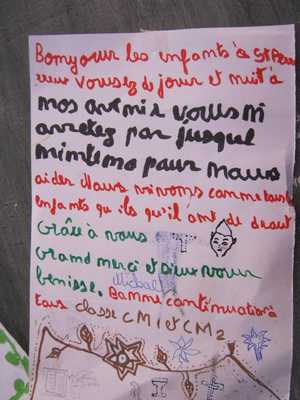 Bonyour les enfants à St Pierre
vous
de jour et nuit à
nos ont mie vous ni
arretez par jusque
mintemo pour Mous
aider Nous vivons comme tous
enfants qu ils qu'il ont de droit
Grâce à vous
Grand merci et Dieu vous
benisse. Bonne continuation à
tous classe CM1 et CM2